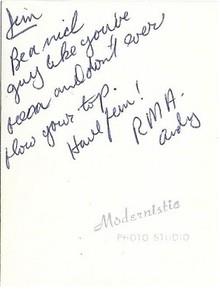 Jim
Be a nick
guy like you've
and don't ever
blow your top.
Have fun!
R.M.A.
Andy
Modernistic
PHOTO STUDIO